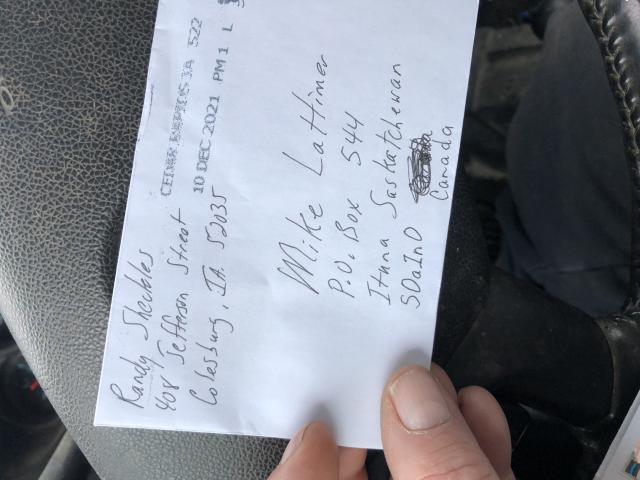 Randy Sheckles
408 Jefferson Street
Colesburg, IA 52035
CEDAR RAPIDS IA 522
10 DEC 2021 PM 1 L
Mike Lattimer
P.O. Box 544
Ituna Saskatchewan
S0a1n0
Canada